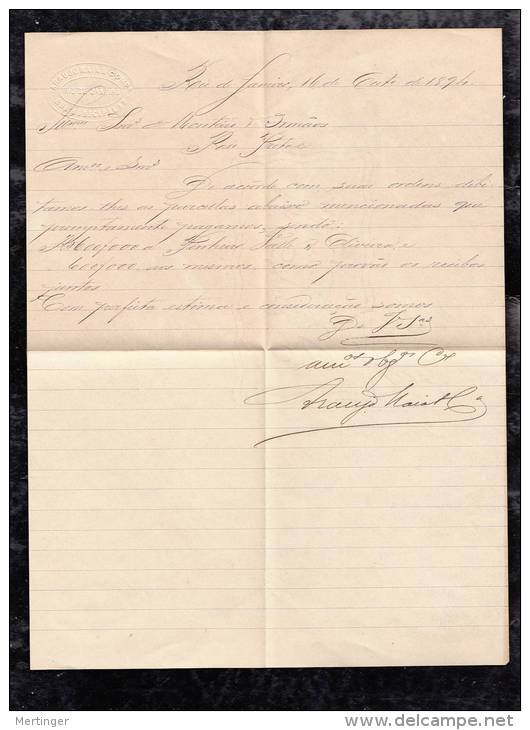 Rio de Janeiro, 16 de Outo de 1894
Illmos Snrs Monteiro & Irmãos
Amos e Snrs
De acordo com suas ordens debi-
tamos lhes as parcellas abaixo mencionadas que
promptamente pagamos, sendo:
600,000 a & Oliveira, e
600,000 aos mesmos, como provão os recibos
juntos.
Com perfeita estima e consideração somos
De V. Sas
amos obgos Cos
Araujo Maia & Ca
Mertinger
www.delcampe.net